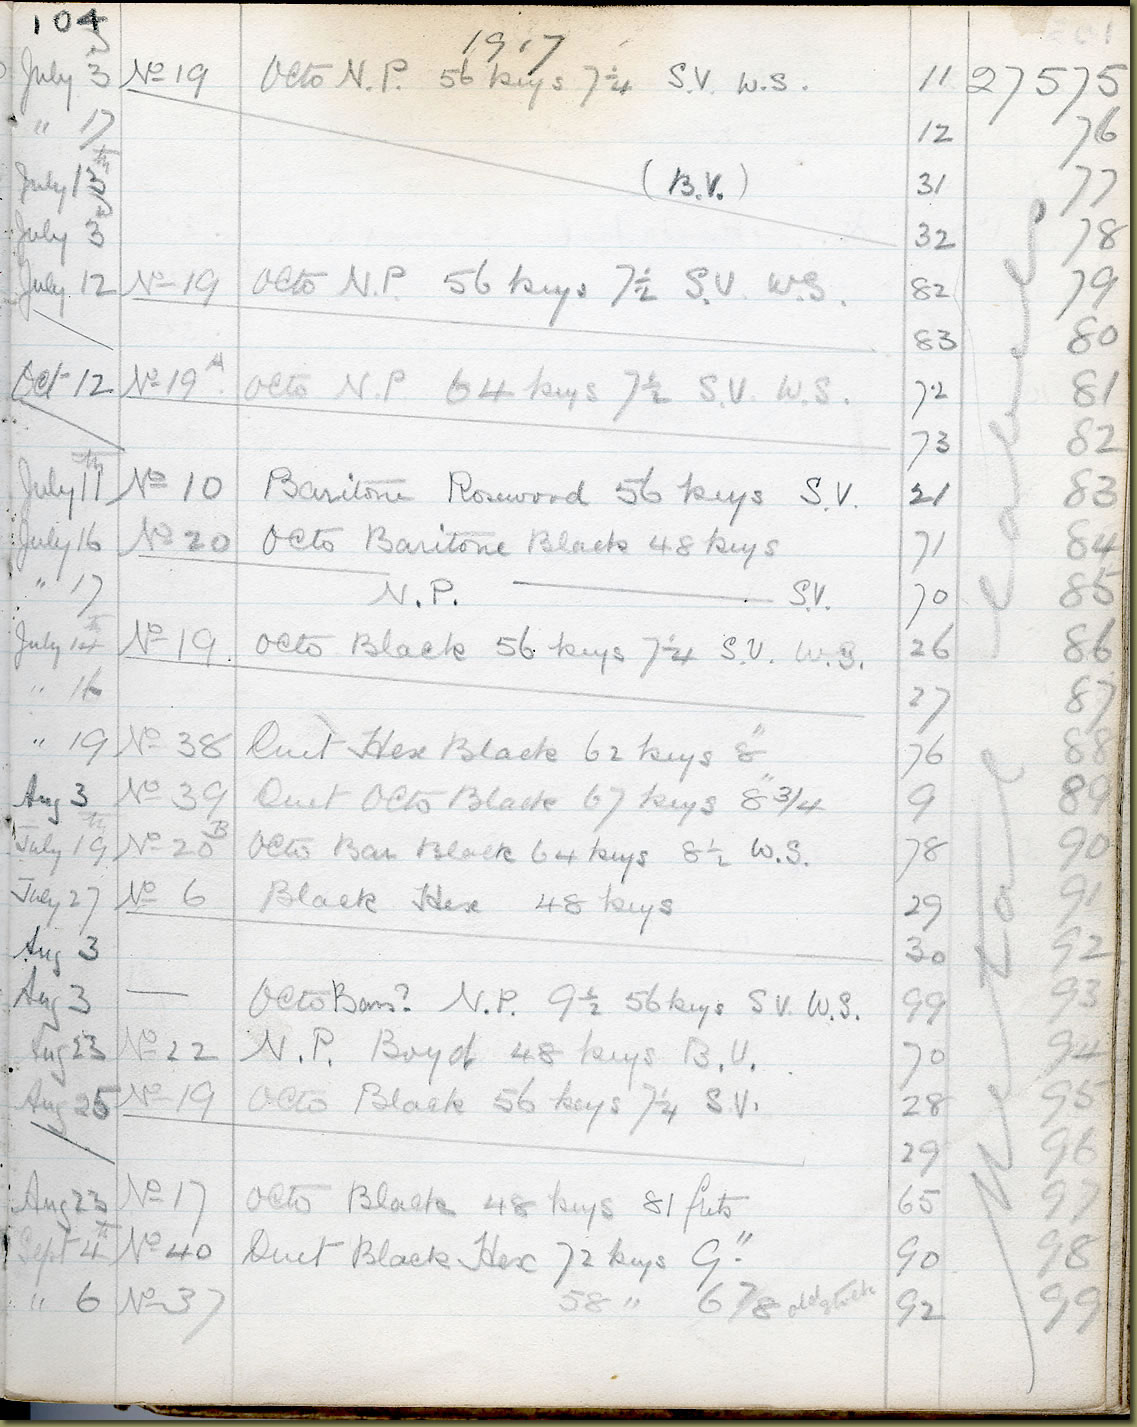 104
1917
July 3 No 19 Octo N.P. 56 keys 7¼ S.V. W.S. 11 27575
" 17 12 76
July 13th (B.V.) 31 77
July 3 32 78
July 12 No 19 Octo N.P. 56 keys 7½ S.V. W.S. 82 79
83 80
Oct 12 No 19A Octo N.P 64 keys 7½ S.V. W.S. 72 81
73 82
July 11th No 10 Baritone Rosewood 56 keys S.V. 21 83
July 16 No 20 Octo Baritone Black 48 keys 71 84
" 17 N.P. S.V. 70 85
July 14th No 19 Octo Black 56 keys 7¼ S.V. W.S. 26 86
" 16 27 87
" 19 No 38 Duet Hex Black 62 keys 8" 76 88
Aug 3 No 39 Duet Octo Black 67 keys 8"3/4 9 89
July 19th No 20B Octo Bar Black 64 keys 8½ W.S. 78 90
July 27 No 6 Black Hex 48 keys 29 91
Aug 3 30 92
Aug 3 — Octo Bars? N.P. 9½ 56 keys S.V. W.S. 99 93
Aug 23 No 22 N.P. Boyd 48 keys B.V. 70 94
Aug 25 No 19 Octo Black 56 keys 7¼ S.V. 28 95
29 96
Aug 23 No 17 Octo Black 48 keys 81 frts 65 97
Sept 4th No 40 Duet Black Hex 72 keys 9" 90 98
" 6 No 37 58 " 6 7/8 old stock 92 99